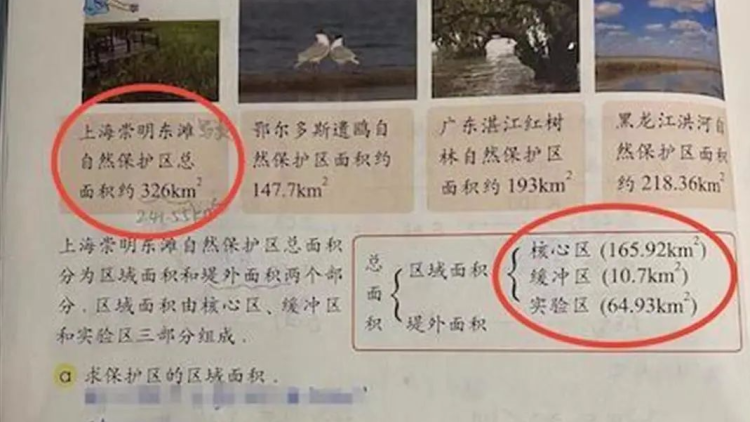 上海崇明东滩
自然保护区总
面积约 326km²
鄂尔多斯遗鸥自
然保护区面积约
147.7km²
广东湛江红树
林自然保护区
面积约 193km²
黑龙江洪河自
然保护区面积
约 218.36km²
241.55km²
上海崇明东滩自然保护区总面积
分为区域面积和堤外面积两个部
分．区域面积由核心区、缓冲区
和实验区三部分组成．
总面积
区域面积
核心区 (165.92km²)
缓冲区 (10.7km²)
实验区 (64.93km²)
堤外面积
a 求保护区的区域面积．